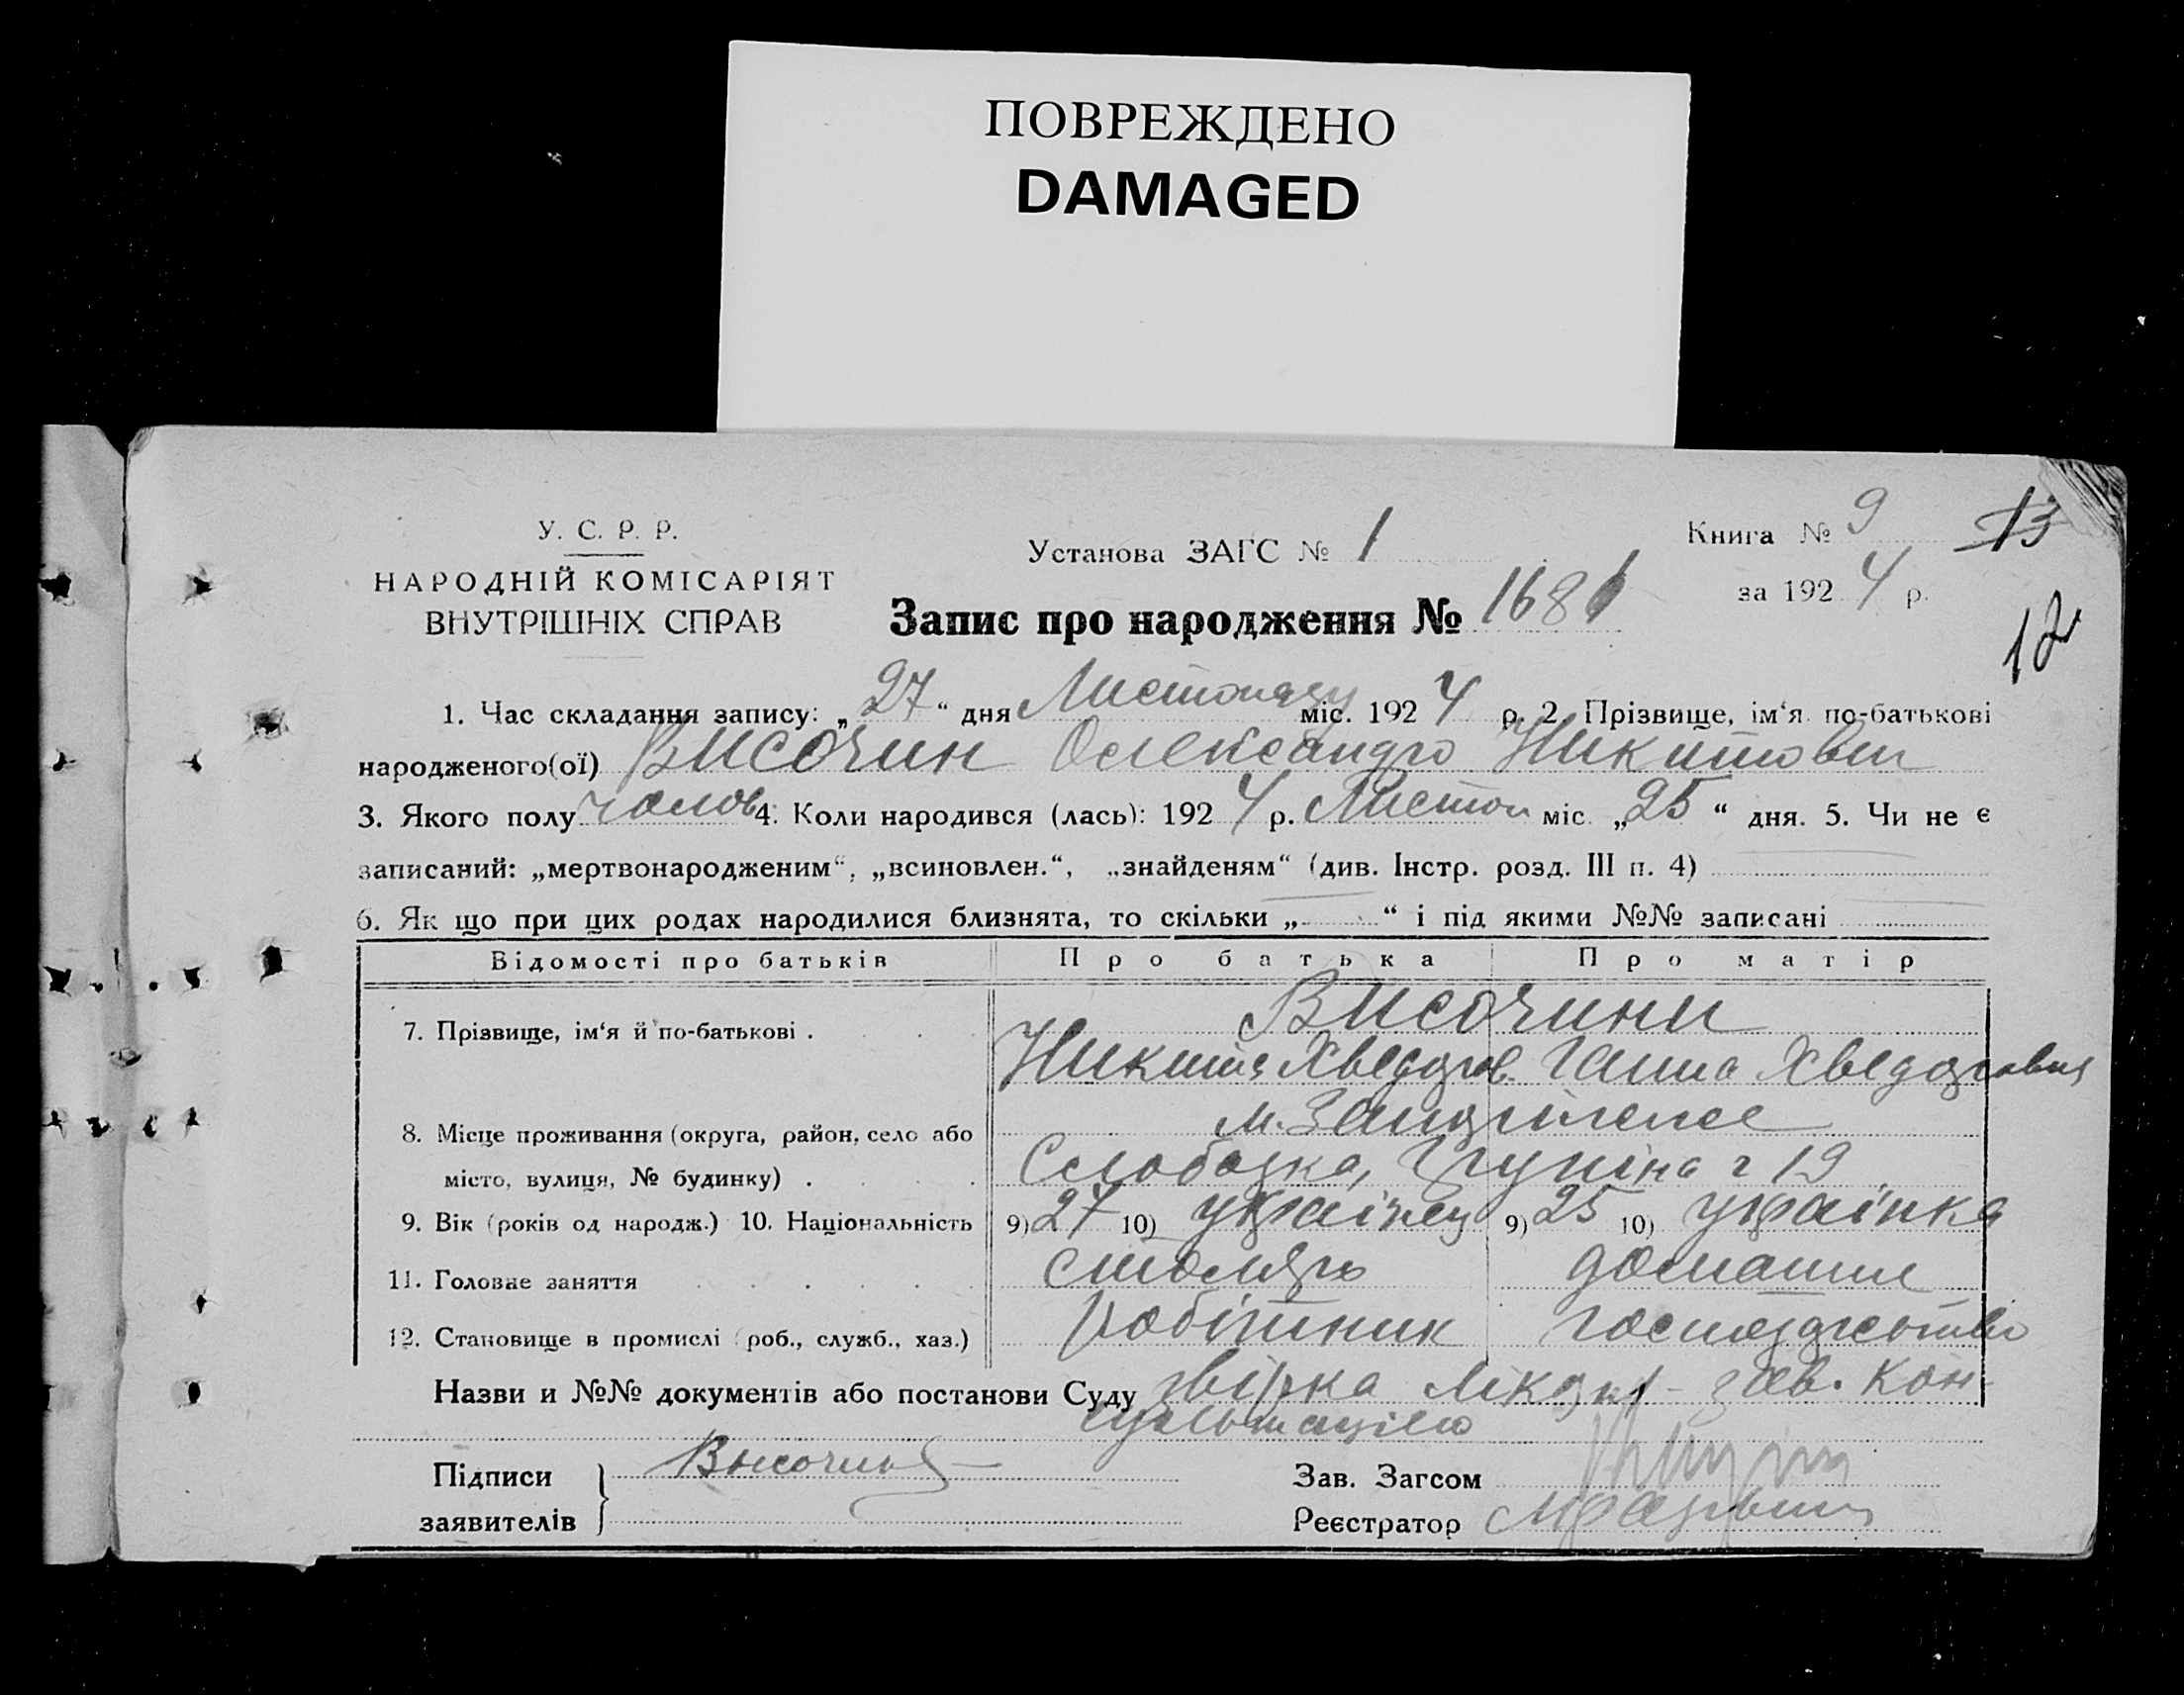 ПОВРЕЖДЕНО
DAMAGED
У. С. Р. Р.
НАРОДНІЙ КОМІСАРІЯТ
ВНУТРІШНІХ СПРАВ
Установа ЗАГС № 1
Запис про народження № 1681
Книга № 9 13
за 1924 р.
12
1. Час складання запису: „27“ дня Листопаду міс. 1924 р. 2. Прізвище, ім‘я по-батькові
народженого(ої) Височин Олександр Никитович
3. Якого полу чолов 4. Коли народився (лась): 1924 р. Листоп міс. „25“ дня. 5. Чи не є
записаний: „мертвонародженим“, „всиновлен.“, „знайденям“ (див. Інстр. розд. III п. 4)
6. Як що при цих родах народилися близнята, то скільки „ “ і під якими №№ записані
Відомості про батьків Про батька Про матір
7. Прізвище, ім‘я й по-батькові . Височини
Никита Хведоров. Ганна Хведоровна
8. Місце проживання (округа, район, село або
місто, вулиця, № будинку) . Слободка, 19
9. Вік (років од народж.) 10. Національність 9) 27 10) українец 9) 25 10) українка
11. Головне заняття столяр домашнє
12. Становище в промислі (роб., служб., хаз.) робітник господарство
Назви и №№ документів або постанови Суду звірка зав. кон-
сультацією
Підписи
заявителів } Височин
Зав. Загсом
Реєстратор